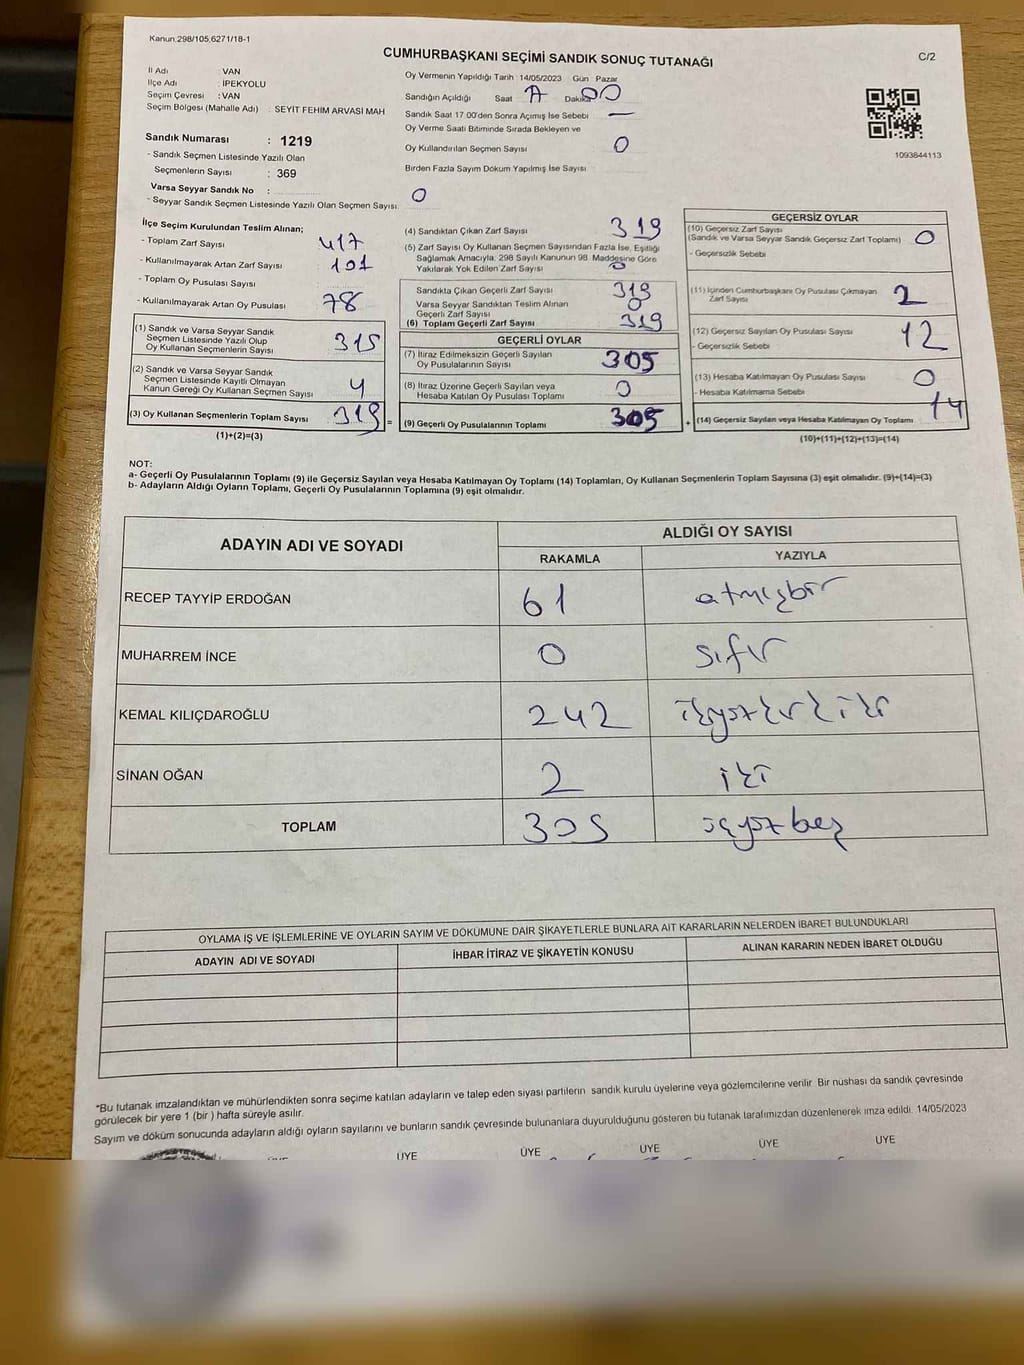 Kanun.298/105,6271/18-1
CUMHURBAŞKANI SEÇİMİ SANDIK SONUÇ TUTANAĞI
C/2
İl Adı : VAN
İlçe Adı : İPEKYOLU
Seçim Çevresi : VAN
Seçim Bölgesi (Mahalle Adı) : SEYİT FEHİM ARVASİ MAH
Sandık Numarası : 1219
- Sandık Seçmen Listesinde Yazılı Olan
Seçmenlerin Sayısı : 369
Varsa Seyyar Sandık No :
- Seyyar Sandık Seçmen Listesinde Yazılı Olan Seçmen Sayısı: 0
Oy Vermenin Yapıldığı Tarih : 14/05/2023 Gün : Pazar
Sandığın Açıldığı Saat Dakika 00
Sandık Saat 17.00'den Sonra Açımış İse Sebebi —
Oy Verme Saati Bitiminde Sırada Bekleyen ve
Oy Kullandırılan Seçmen Sayısı 0
Birden Fazla Sayım Döküm Yapılmış İse Sayısı
1093844113
İlçe Seçim Kurulundan Teslim Alınan;
- Toplam Zarf Sayısı 417
- Kullanılmayarak Artan Zarf Sayısı 101
- Toplam Oy Pusulası Sayısı
- Kullanılmayarak Artan Oy Pusulası 78
(1) Sandık ve Varsa Seyyar Sandık
Seçmen Listesinde Yazılı Olup
Oy Kullanan Seçmenlerin Sayısı 315
(2) Sandık ve Varsa Seyyar Sandık
Seçmen Listesinde Kayıtlı Olmayan
Kanun Gereği Oy Kullanan Seçmen Sayısı 4
(3) Oy Kullanan Seçmenlerin Toplam Sayısı 319 =
(1)+(2)=(3)
(4) Sandıktan Çıkan Zarf Sayısı 319
(5) Zarf Sayısı Oy Kullanan Seçmen Sayısından Fazla İse, Eşitliği
Sağlamak Amacıyla: 298 Sayılı Kanunun 98. Maddesine Göre
Yakılarak Yok Edilen Zarf Sayısı 0
Sandıkta Çıkan Geçerli Zarf Sayısı 319
Varsa Seyyar Sandıktan Teslim Alınan
Geçerli Zarf Sayısı 0
(6) Toplam Geçerli Zarf Sayısı 319
GEÇERLİ OYLAR
(7) İtiraz Edilmeksizin Geçerli Sayılan
Oy Pusulalarının Sayısı 305
(8) İtiraz Üzerine Geçerli Sayılan veya
Hesaba Katılan Oy Pusulası Toplamı 0
(9) Geçerli Oy Pusulalarının Toplamı 305 +
GEÇERSİZ OYLAR
(10) Geçersiz Zarf Sayısı
(Sandık ve Varsa Seyyar Sandık Geçersiz Zarf Toplamı) 0
- Geçersizlik Sebebi
(11) İçinden Cumhurbaşkanı Oy Pusulası Çıkmayan
Zarf Sayısı 2
(12) Geçersiz Sayılan Oy Pusulası Sayısı 12
- Geçersizlik Sebebi
(13) Hesaba Katılmayan Oy Pusulası Sayısı 0
- Hesaba Katılmama Sebebi
(14) Geçersiz Sayılan veya Hesaba Katılmayan Oy Toplamı 14
(10)+(11)+(12)+(13)=(14)
NOT:
a- Geçerli Oy Pusulalarının Toplamı (9) ile Geçersiz Sayılan veya Hesaba Katılmayan Oy Toplamı (14) Toplamları, Oy Kullanan Seçmenlerin Toplam Sayısına (3) eşit olmalıdır. (9)+(14)=(3)
b- Adayların Aldığı Oyların Toplamı, Geçerli Oy Pusulalarının Toplamına (9) eşit olmalıdır.
ADAYIN ADI VE SOYADI
ALDIĞI OY SAYISI
RAKAMLA YAZIYLA
RECEP TAYYİP ERDOĞAN 61 atmışbir
MUHARREM İNCE 0 sıfır
KEMAL KILIÇDAROĞLU 242 ikiyüzkırkiki
SİNAN OĞAN 2 iki
TOPLAM 305 üçyüzbeş
OYLAMA İŞ VE İŞLEMLERİNE VE OYLARIN SAYIM VE DÖKÜMÜNE DAİR ŞİKAYETLERLE BUNLARA AİT KARARLARIN NELERDEN İBARET BULUNDUKLARI
ADAYIN ADI VE SOYADI İHBAR İTİRAZ VE ŞİKAYETİN KONUSU ALINAN KARARIN NEDEN İBARET OLDUĞU
*Bu tutanak imzalandıktan ve mühürlendikten sonra seçime katılan adayların ve talep eden siyasi partilerin sandık kurulu üyelerine veya gözlemcilerine verilir. Bir nüshası da sandık çevresinde
görülecek bir yere 1 (bir ) hafta süreyle asılır.
Sayım ve döküm sonucunda adayların aldığı oyların sayılarını ve bunların sandık çevresinde bulunanlara duyurulduğunu gösteren bu tutanak tarafımızdan düzenlenerek imza edildi. 14/05/2023
ÜYE ÜYE ÜYE ÜYE ÜYE